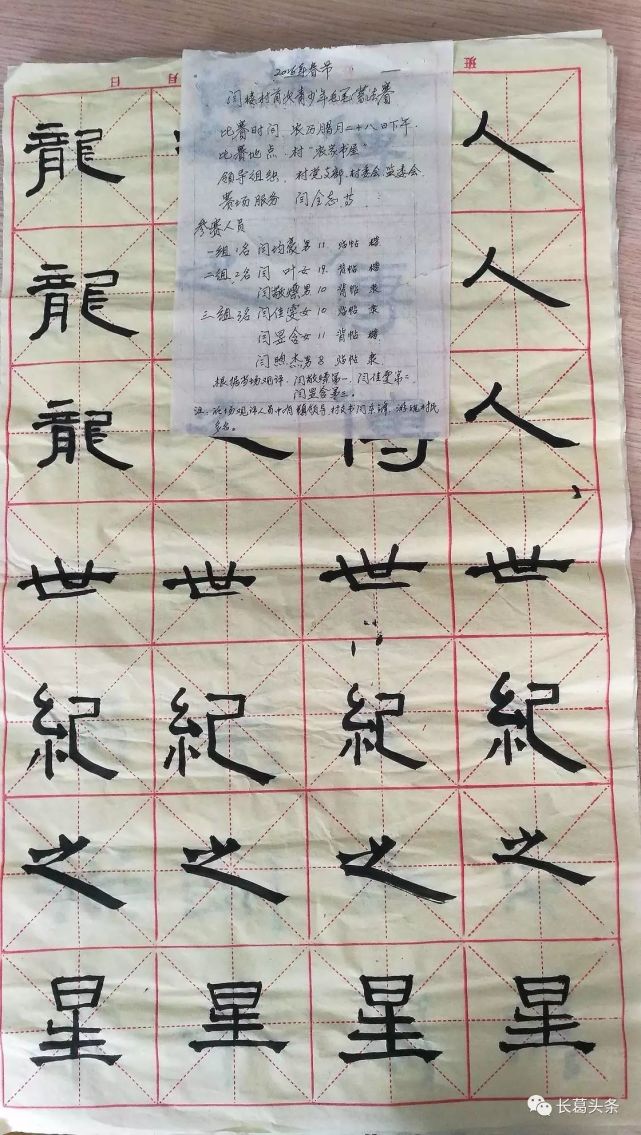 班 月 日
2016年春节
闫楼村首次青少年毛笔书法赛
比赛时间 农历腊月二十八日下午
比赛地点:村"农家书屋"
领导组织:村党支部.村委会.监委会
赛场服务 闫全志 等
参赛人员
一组1名 闫均豪男 11 临帖 楷
二组2名 闫 叶女 12 背帖 楷
闫敬燦男 10 背帖 隶
三组3名 闫佳雯女 10 临帖 隶
闫昱含女 11 背帖 楷
闫煦杰男 8 临帖 隶
根据当场观评:闫敬燦第一、闫佳雯第二、
闫昱含第三。
注:现场观评人员中有镇领导 村支书闫东锋 游玩村民
多名.
龍 人
龍 人
龍 人
世 世 世 世
紀 紀 紀 紀
之 之 之 之
星 星 星 星
长葛头条